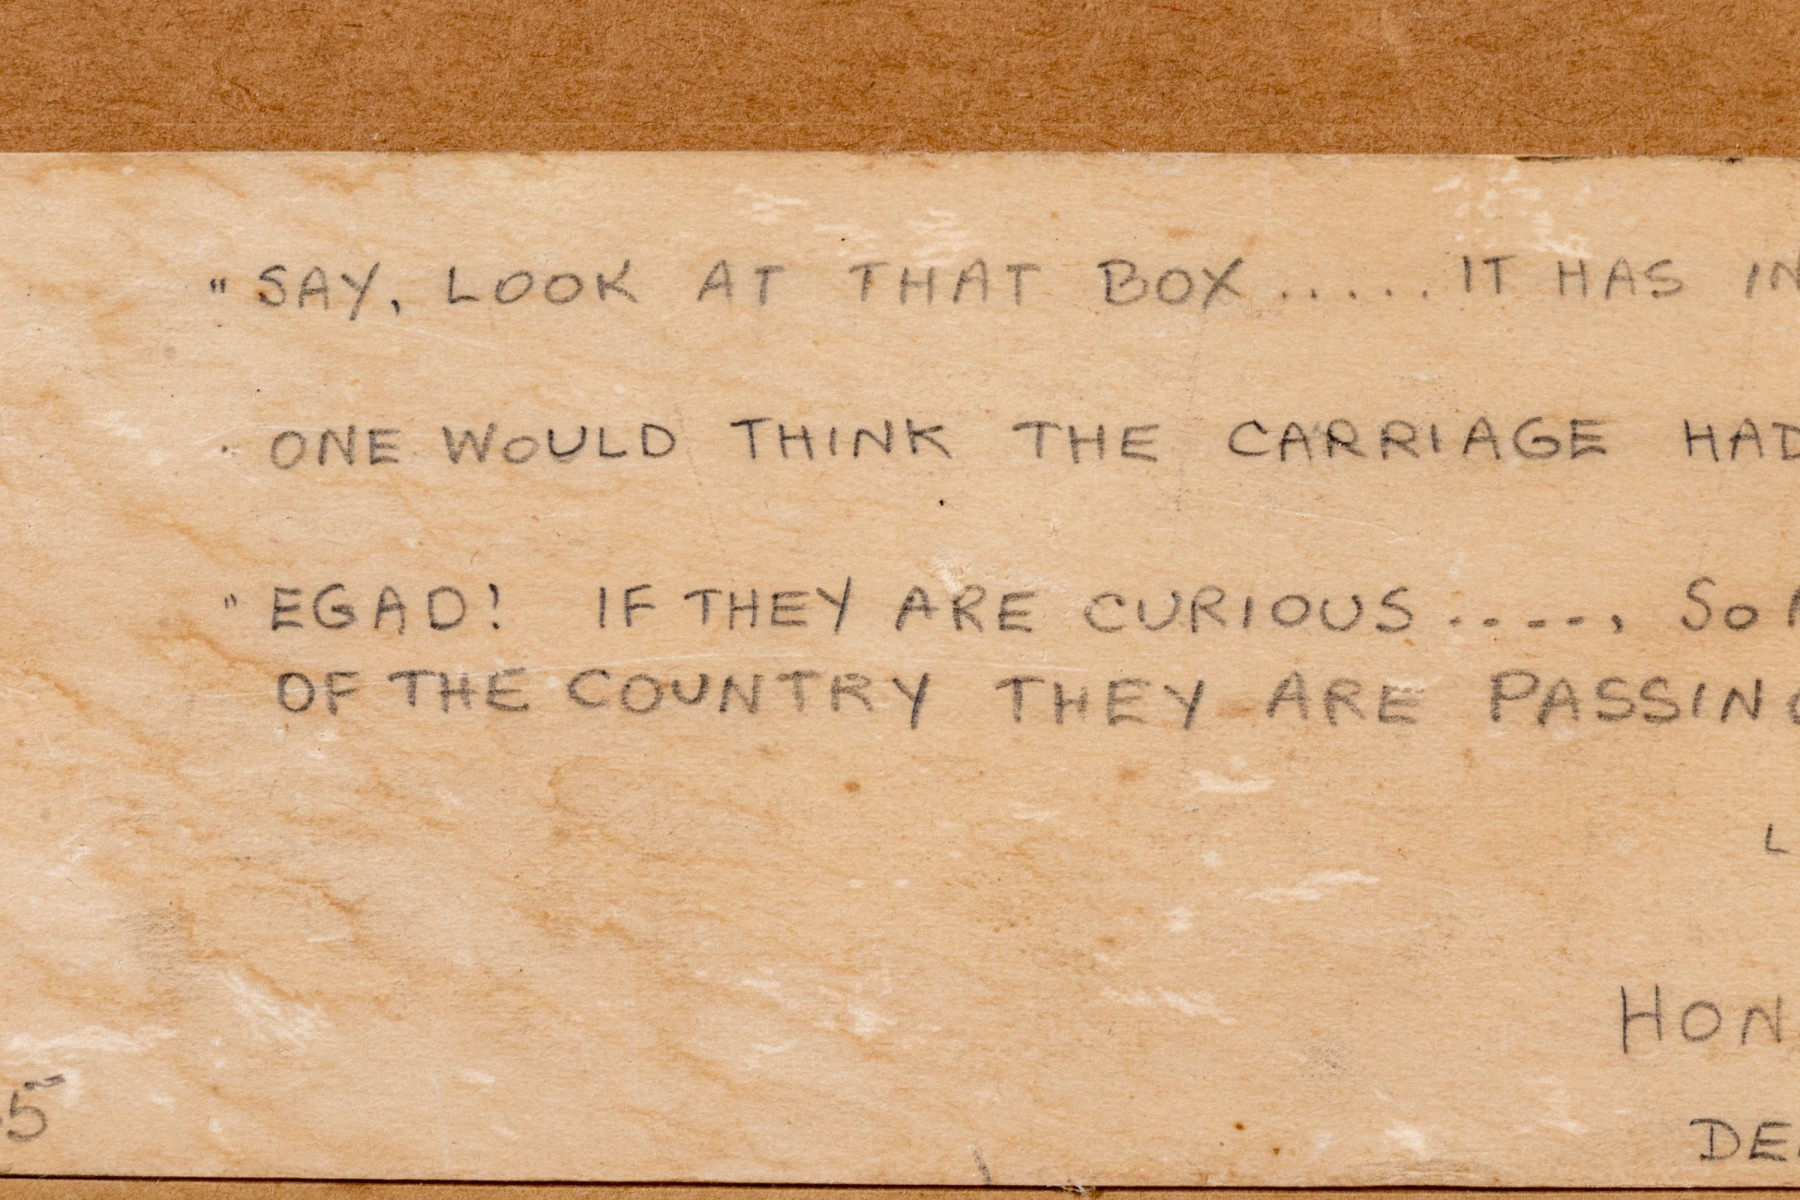 "SAY, LOOK AT THAT BOX.....IT HAS IN
ONE WOULD THINK THE CARRIAGE HAD
"EGAD! IF THEY ARE CURIOUS....., SO
OF THE COUNTRY THEY ARE PASSING
L
HON
5
DE